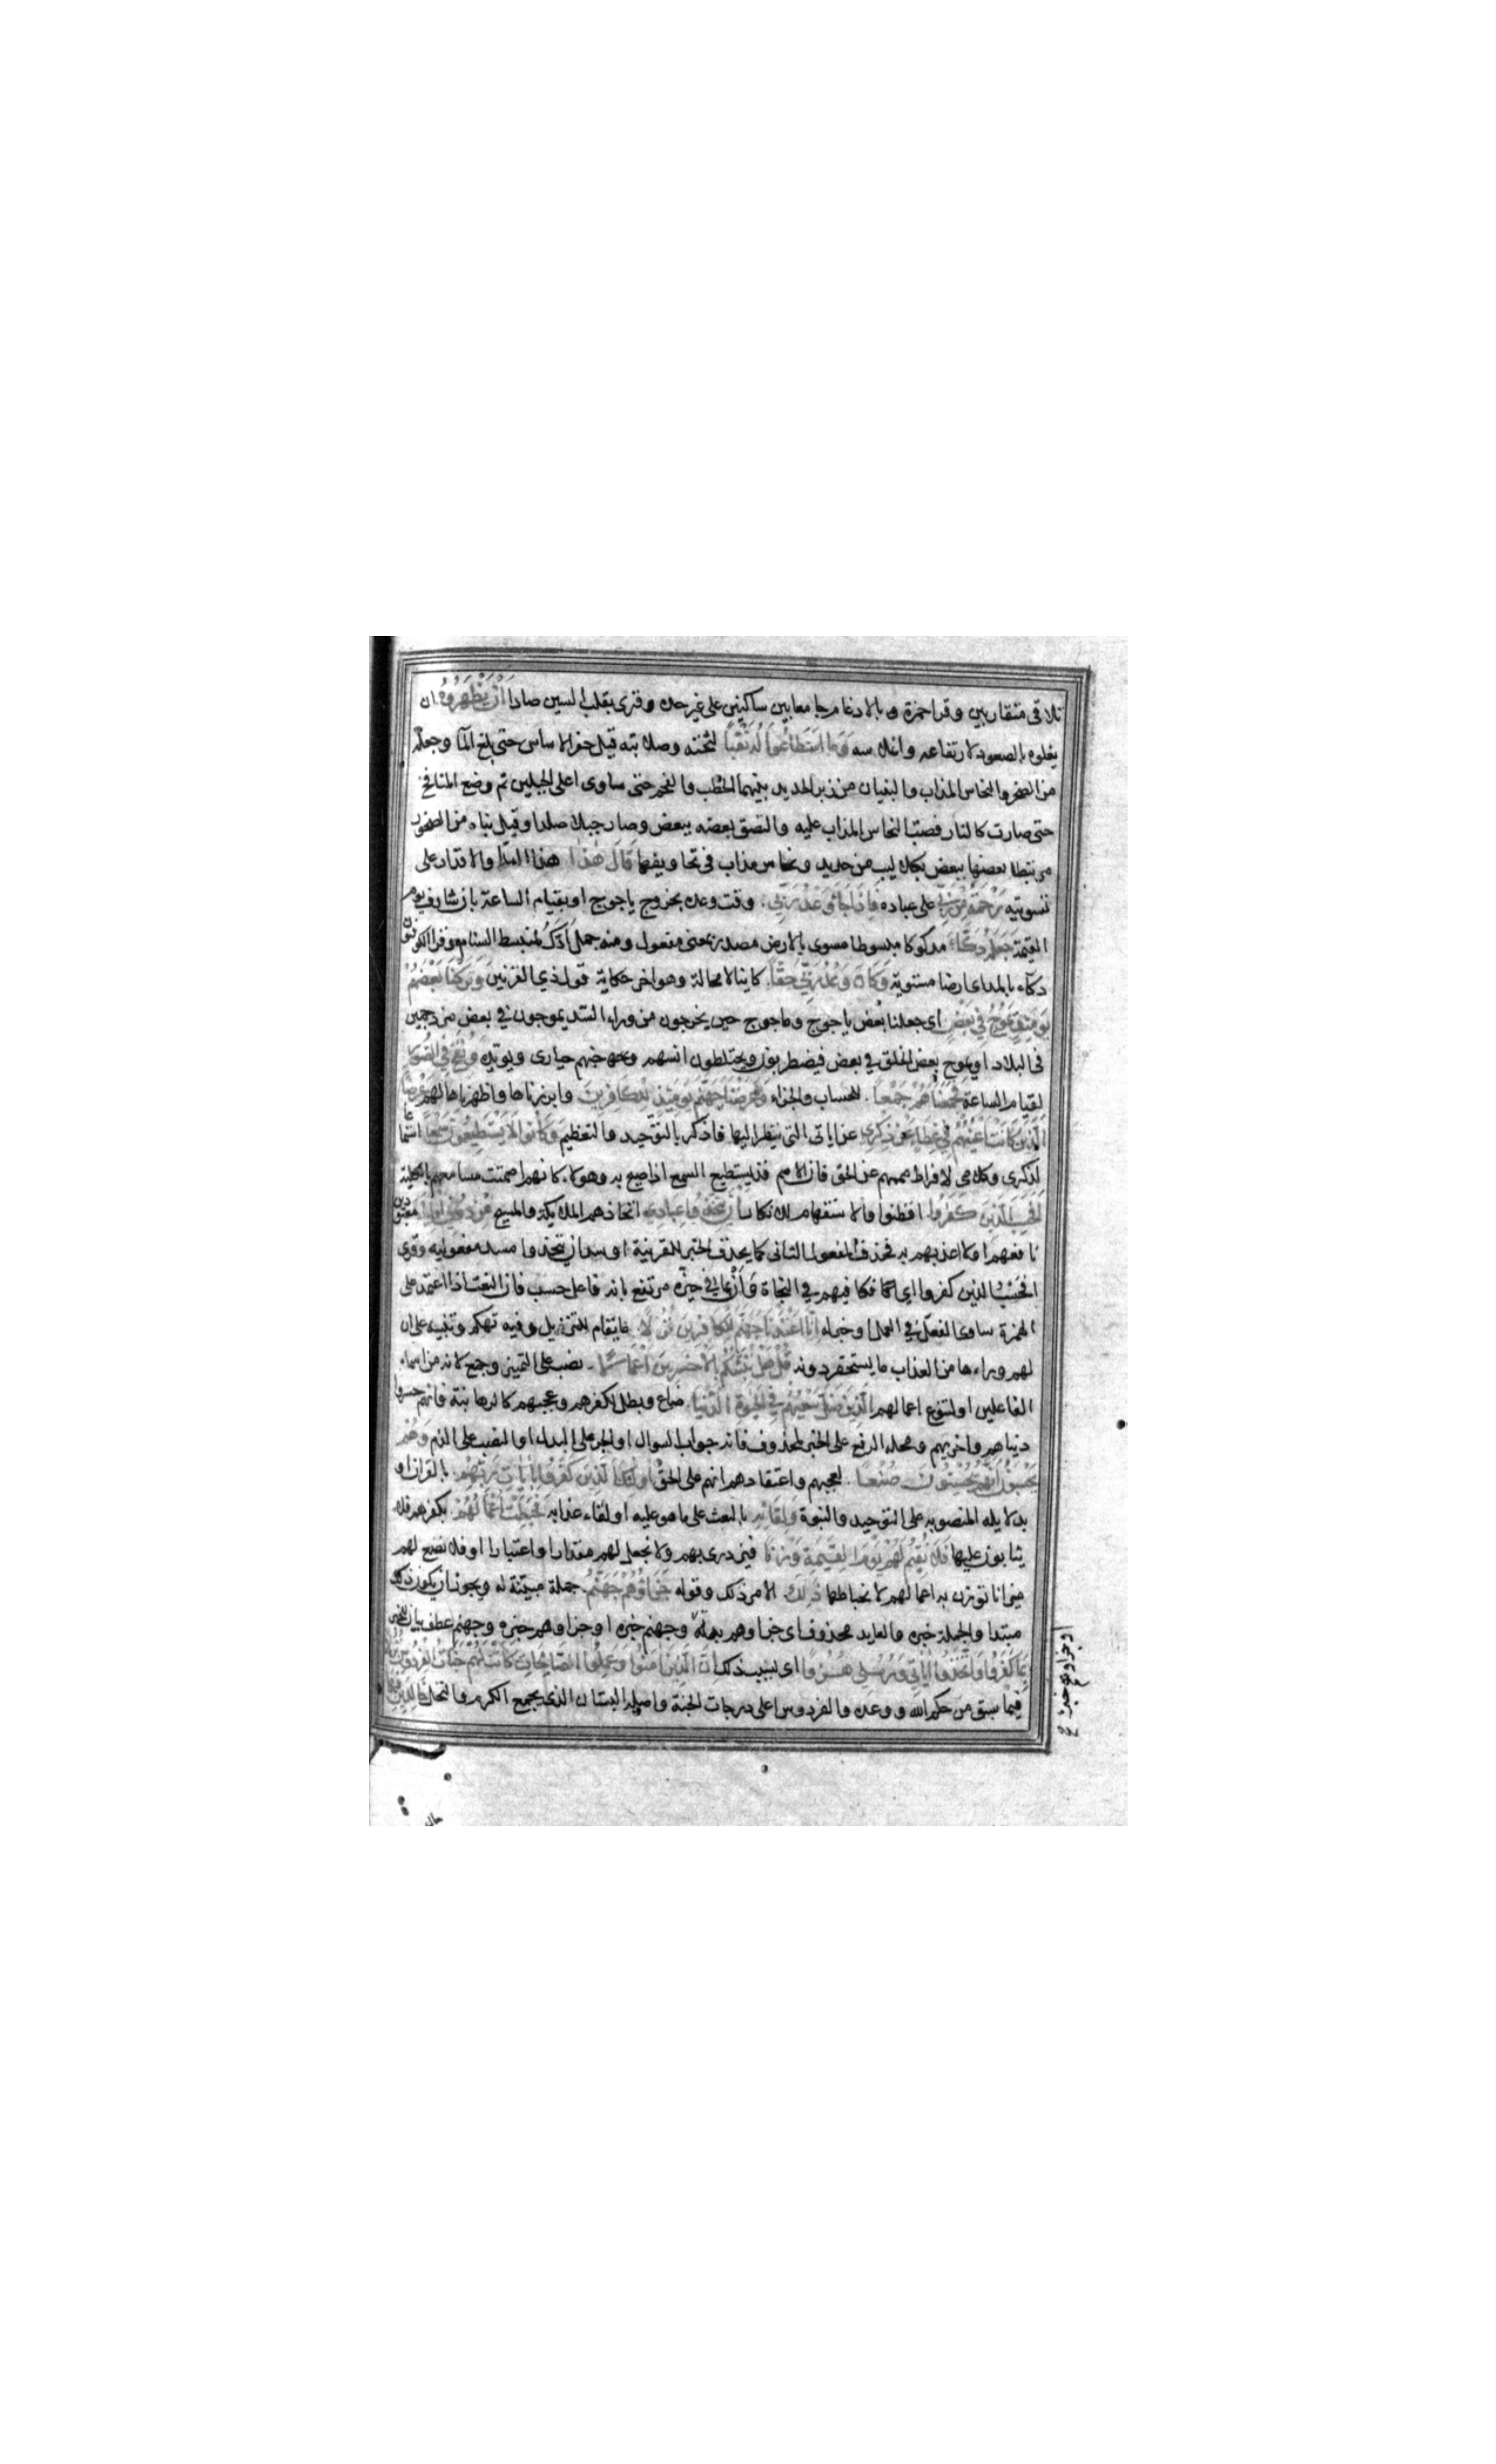 تلاقى متقاربين وقرا حمزة بالادغام جامعا بين ساكنين على غير حده وقرى بقلب السين صادا اَنْ يَظْهَرُوهُ ان
يعلوه بالصعود لارتفاعه وانملاسه وَمَا اسْتَطَاعُوا لَهُ نَقْباً لثخنه وصلابته قيل حفر الاساس حتى بلغ المآ وجعله
من الصخر والنحاس المذاب والبنيان من زبر الحديد بينهما الحطب والفحم حتى ساوى اعلى الجبلين ثم وضع المنافخ
حتى صارت كالنار فصب النحاس المذاب عليه والتصق بعضه ببعض وصار جبلا صلدا وقيل بناه من الصخور
مرتبطا بعضها ببعض بكلاليب من حديد ونحاس مذاب فى تجاويفها قَالَ هٰذَا هذا السد او الاقدار على
تسويته رَحْمَةٌ مِنْ رَبِّي على عباده فَاِذَا جَآءَ وَعْدُ رَبِّي وقت وعده بخروج ياجوج او بقيام الساعة بان شارف يوم
القيمة جَعَلَهُ دَكَّاءَ مدكوكا مبسوطا مسوى بالارض مصدر بمعنى مفعول ومنه جمل اَدَكُّ لمنبسط السنام وقرا الكوفيون
دكآء بالمد اى ارضا مستوية وَكَانَ وَعْدُ رَبِّي حَقّاً كاينا لا محالة وهو اخر حكاية قول ذي القرنين وَتَرَكْنَا بَعْضَهُمْ
يَوْمَئِذٍ يَمُوجُ فِي بَعْضٍ اى جعلنا بعض ياجوج وماجوج حين يخرجون من وراء السد يموجون في بعض مزدحمين
فى البلاد او يموج بعض الخلق في بعض فيضطربون ويختلطون انسهم وجنهم حيارى ويويده وَنُفِخَ فِي الصُّورِ
لقيام الساعة فَجَمَعْنَاهُمْ جَمْعاً للحساب والجزاء وَعَرَضْنَا جَهَنَّمَ يَوْمَئِذٍ لِلْكَافِرِينَ وابرزناها واظهرناها لهم عَرْضًا
اَلَّذِينَ كَانَتْ اَعْيُنُهُمْ فِي غِطَاءٍ عَنْ ذِكْرِي عن اياتى التى ينظر اليها فاذكر بالتوحيد والتعظيم وَكَانُوا لَا يَسْتَطِيعُونَ سَمْعًا استماعا
لذكرى وكلامى لافراط صممهم عن الحق فان الاصم قد يستطيع السمع اذا صيح به وهولاء كانهم اصمتت مسامعهم بالكلية
اَفَحَسِبَ الَّذِينَ كَفَرُوا افظنوا والاستفهام للانكار اَنْ يَتَّخِذُوا عِبَادِي اتخاذهم الملايكة والمسيح مِنْ دُونِي اَوْلِيَاءَ معبودين
نافعهم او لا اعذبهم به فحذف المفعول الثانى كما يحذف الخبر للقرينة او سد ان يتخذوا مسد مفعوليه وقرى
افحَسْبُ الذين كفروا اى افكافيهم في النجاة وَاَنْ بما في حيزه مرتفع بانه فاعل حسب فان النعت اذا اعتمد على
الهمزة ساوى الفعل في العمل او خبر له اِنَّا اَعْتَدْنَا جَهَنَّمَ لِلْكَافِرِينَ نُزُلًا ما يقام للنزيل وفيه تهكم وتنبيه على ان
لهم وراءها من العذاب ما يستحقر دونه قُلْ هَلْ نُنَبِّئُكُمْ بِالْاَخْسَرِينَ اَعْمَالًا نصب على التميز وجمع لانه من اسماء
الفاعلين او لتنوع اعمالهم اَلَّذِينَ ضَلَّ سَعْيُهُمْ فِي الْحَيٰوةِ الدُّنْيَا ضاع وبطل لكفرهم وعجبهم كالرهابنة فانهم خسروا
دنياهم واخريهم ومحله الرفع على الخبر لمحذوف فانه جواب السوال او الجر على البدل او النصب على الذم وَهُمْ
يَحْسَبُونَ اَنَّهُمْ يُحْسِنُونَ صُنْعًا لعجبهم واعتقادهم انهم على الحق اُولٰئِكَ الَّذِينَ كَفَرُوا بِاٰيَاتِ رَبِّهِمْ بالقران او
بدلايله المنصوبه على التوحيد والنبوة وَلِقَائِهِ بالبعث على ما هو عليه او لقاء عذابه فَحَبِطَتْ اَعْمَالُهُمْ بكفرهم فلا
يثابون عليها فَلَا نُقِيمُ لَهُمْ يَوْمَ الْقِيٰمَةِ وَزْنًا فنزدرى بهم ولا نجعل لهم مقدارا واعتبارا او فلا نضع لهم
ميزانا توزن به اعمالهم لانحباطها ذٰلِكَ الامر ذلك وقوله جَزَاؤُهُمْ جَهَنَّمُ جملة مبينة له ويجوز ان يكون ذلك
مبتدا والجملة خبره والعايد محذوف اى جزاوهم به وجهنم خبره او جزاوهم خبره وجهنم عطف بيان للخبر
بِمَا كَفَرُوا وَاتَّخَذُوا اٰيَاتِي وَرُسُلِي هُزُوًا اى بسبب ذلك اِنَّ الَّذِينَ اٰمَنُوا وَعَمِلُوا الصَّالِحَاتِ كَانَتْ لَهُمْ جَنَّاتُ الْفِرْدَوْسِ نُزُلًا
فيما سبق من حكم الله ووعده والفردوس اعلى درجات الجنة واصله البستان الذى يجمع الكرم والنخل خَالِدِينَ فِيهَا